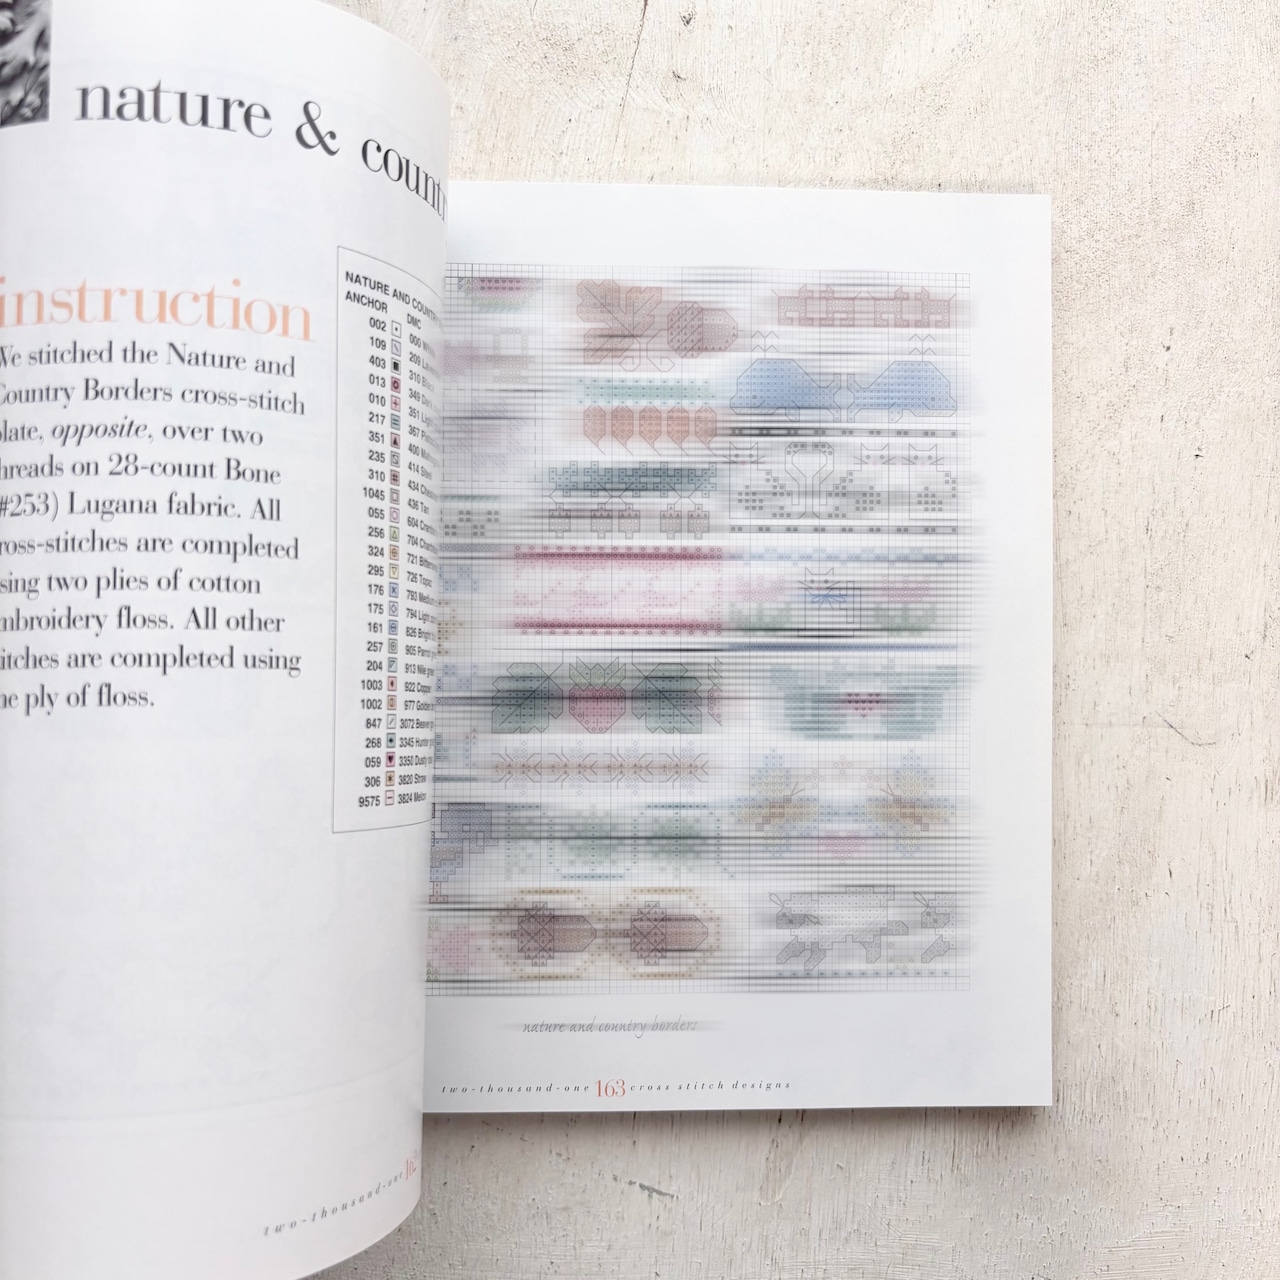 nature & count
instruction
We stitched the Nature and
Country Borders cross-stitch
plate, opposite, over two
threads on 28-count Bone
#253) Lugana fabric. All
cross-stitches are completed
using two plies of cotton
embroidery floss. All other
stitches are completed using
ne ply of floss.
NATURE AND COUNTRY
ANCHOR DMC
002 000
109 209
403 310
013 349
010 351
217 367
351 400
235 414
310 434
1045 436 Tan
055 604
256 704
324 721
295 726 Topaz
176 793
175 794
161 826
257 905
204 913 Nile
1003 922 Copper
1002 977
847 3072 Beaver
268 3345 Hunter
059 3350 Dusty
306 3820 Straw
9575 3824 Melon
two-thousand-one 162
nature and country borders
two-thousand-one 163 cross stitch designs